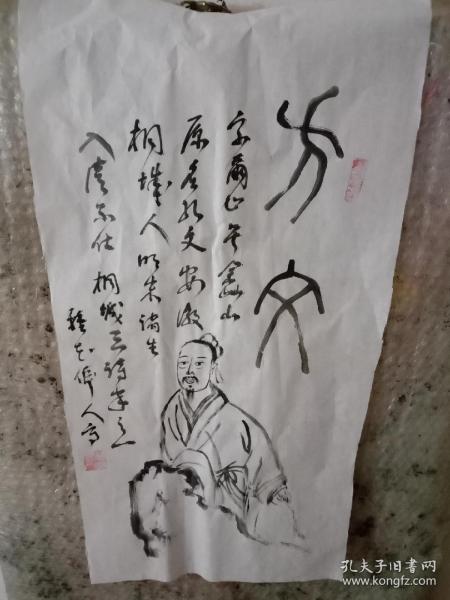 方文
字爾止号嵞山
原名孔文安徽
桐城人明末诸生
入清不仕 桐城三诗家之一
孔夫子旧书网
www.kongfz.com